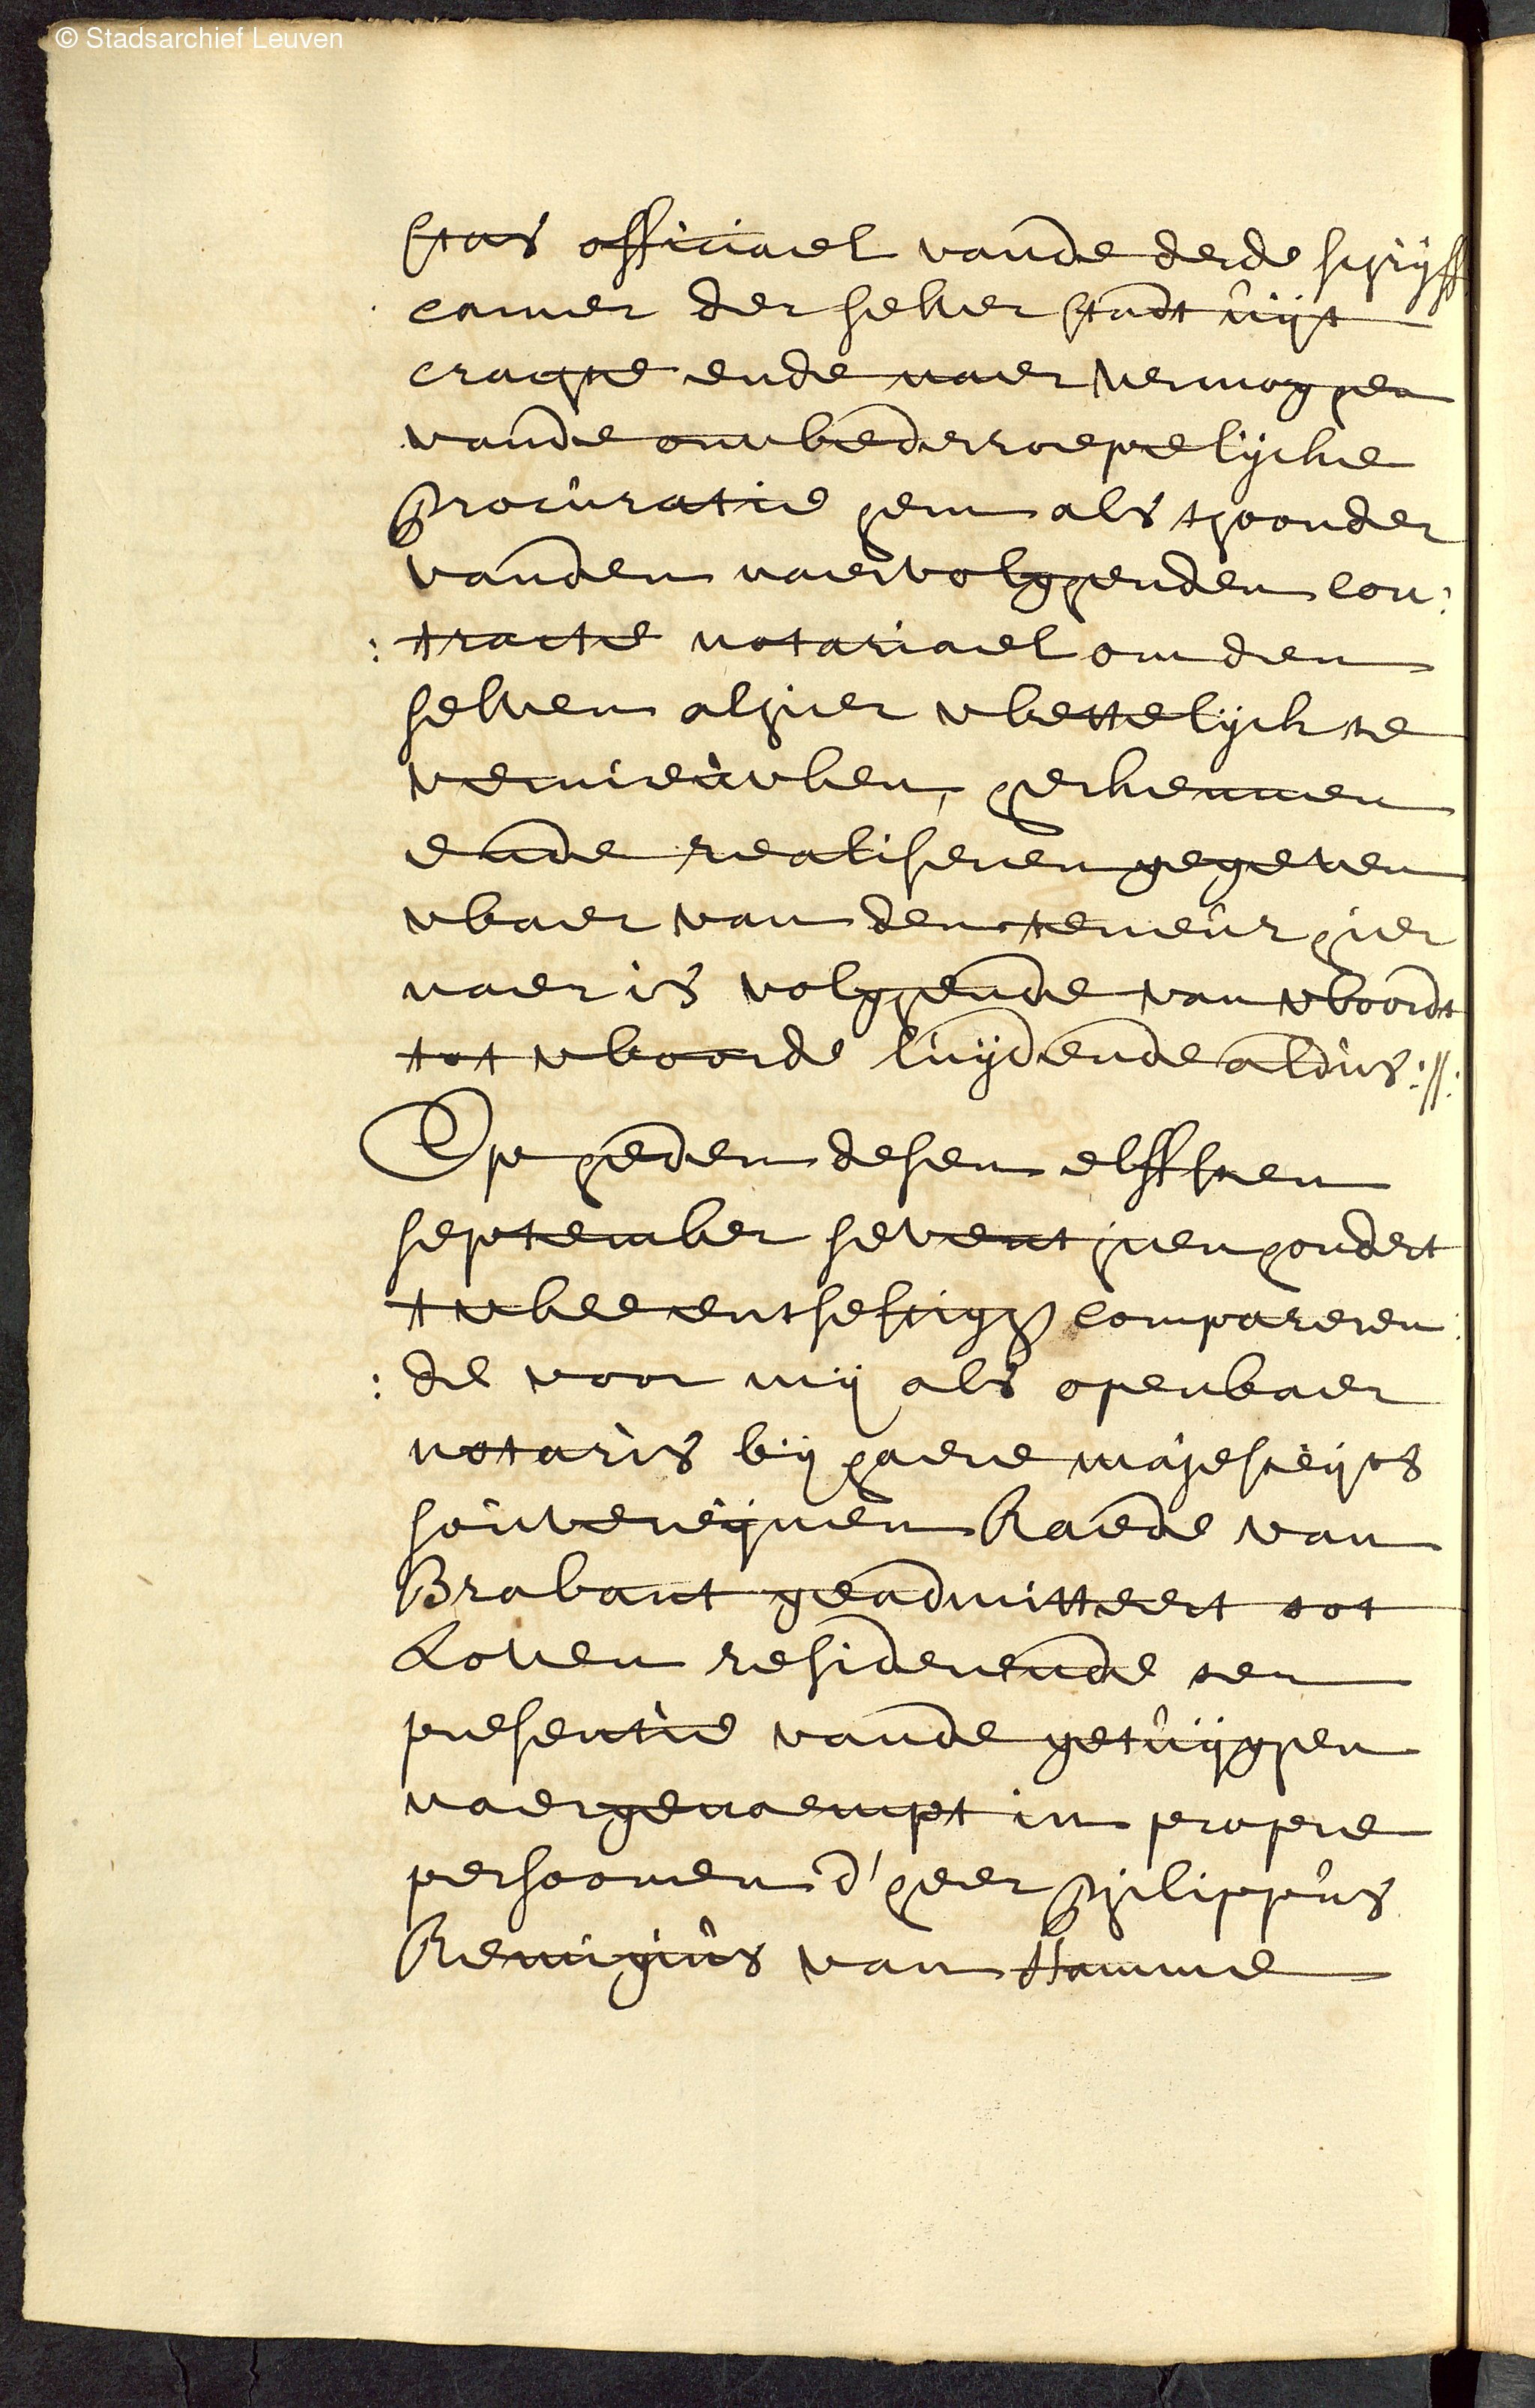 © Stadsarchief Leuven
stas officiael vande derde schrijff
camer der selver stadt uijt
crachte ende naer vermoghen
vande onwederroepelijcke
Procuratie hem als thoonder
vanden naervolghenden con:
: tracte notariael om den
selven alhier wettelijck te
vernieuwen, herkennen
ende realiseren gegeven
waer van den teneur hier
naer is volghende van woordt
tot woorde luijdende aldus://:
Op heden desen elfsten
september seventhien hondert
tweeentsestigh compareren:
: de voor mij als openbaer
notaris bij haere majesteijts
souvereijnen Raede van
Brabant geadmitteert tot
Loven residerende ter
presentie vande getuijghen
naergenaempt in propre
persoonen d'heer Philippus
Remigius van Hamme